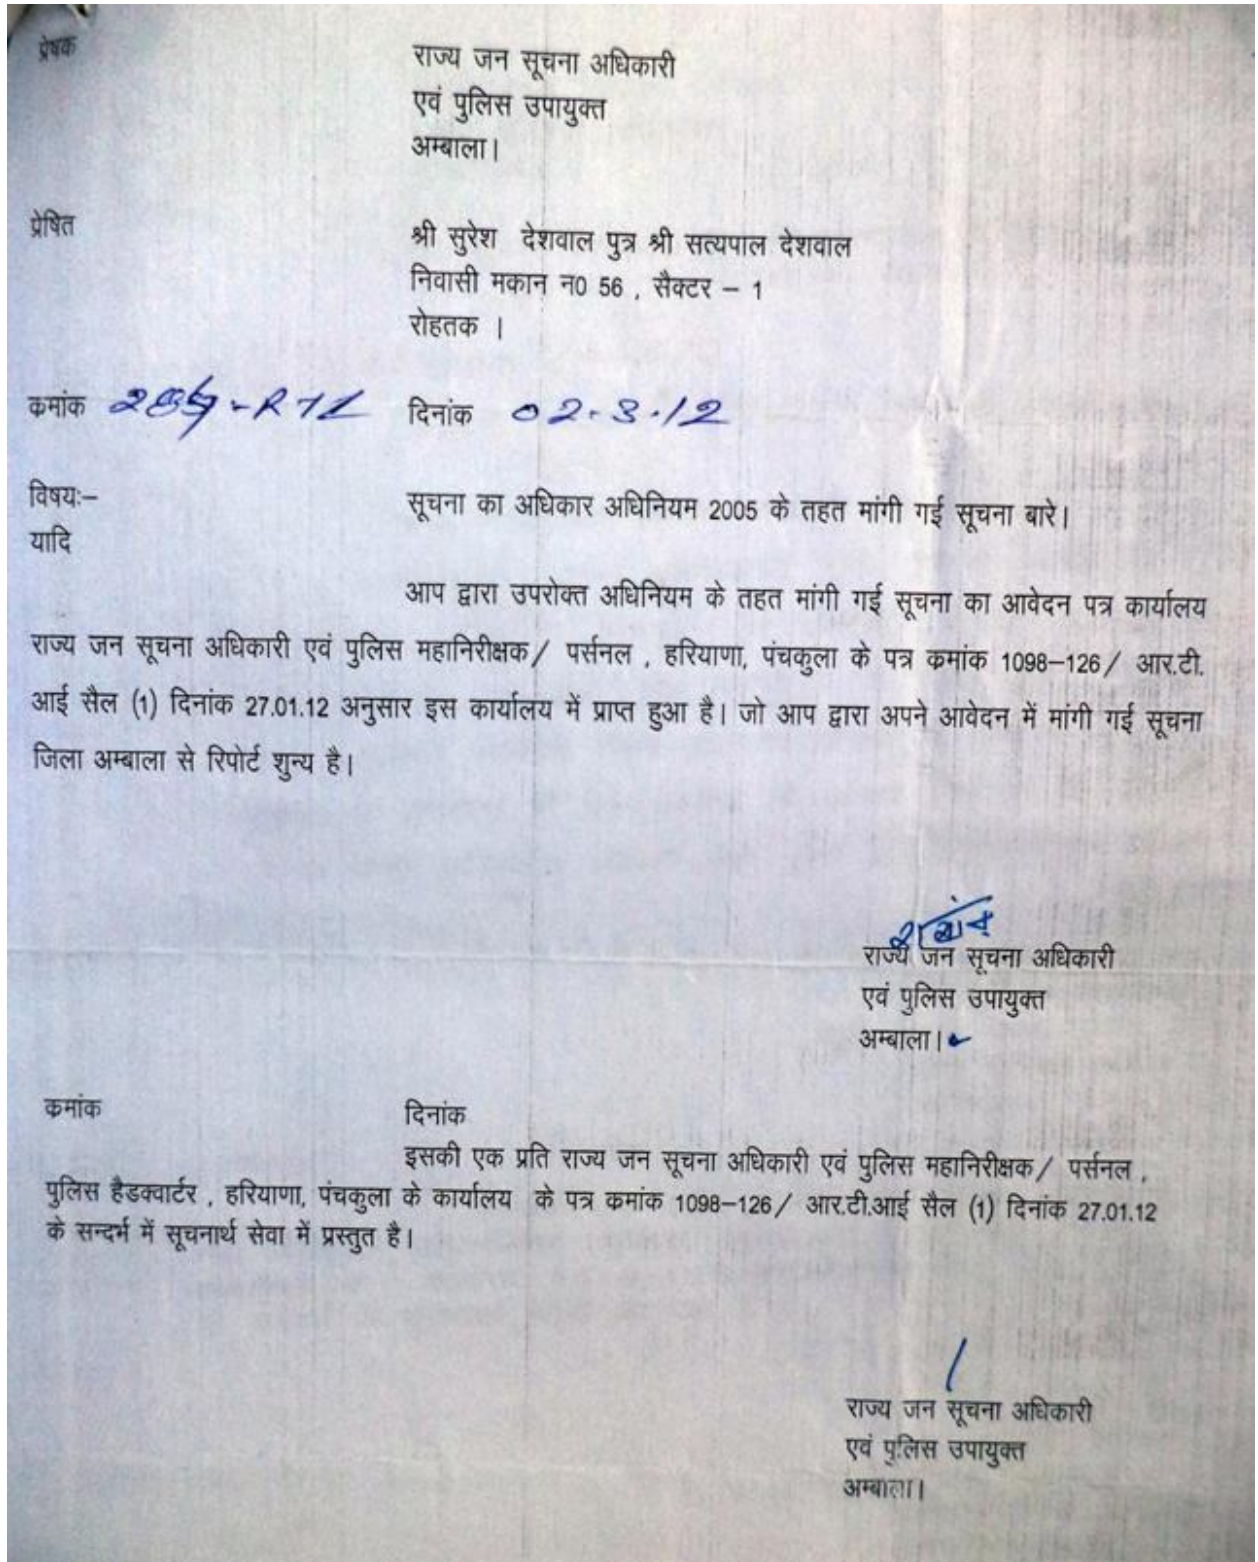 प्रेषक
राज्य जन सूचना अधिकारी
एवं पुलिस उपायुक्त
अम्बाला।
प्रेषित
श्री सुरेश देशवाल पुत्र श्री सत्यपाल देशवाल
निवासी मकान न0 56 , सैक्टर – 1
रोहतक ।
कमांक -RTI दिनांक 02.3.12
विषयः– सूचना का अधिकार अधिनियम 2005 के तहत मांगी गई सूचना बारे।
यादि
आप द्वारा उपरोक्त अधिनियम के तहत मांगी गई सूचना का आवेदन पत्र कार्यालय
राज्य जन सूचना अधिकारी एवं पुलिस महानिरीक्षक/ पर्सनल , हरियाणा, पंचकुला के पत्र कमांक 1098–126/ आर.टी.
आई सैल (1) दिनांक 27.01.12 अनुसार इस कार्यालय में प्राप्त हुआ है। जो आप द्वारा अपने आवेदन में मांगी गई सूचना
जिला अम्बाला से रिपोर्ट शुन्य है।
राज्य जन सूचना अधिकारी
एवं पुलिस उपायुक्त
अम्बाला।
कमांक दिनांक
इसकी एक प्रति राज्य जन सूचना अधिकारी एवं पुलिस महानिरीक्षक/ पर्सनल ,
पुलिस हैडक्वार्टर , हरियाणा, पंचकुला के कार्यालय के पत्र कमांक 1098–126/ आर.टी.आई सैल (1) दिनांक 27.01.12
के सन्दर्भ में सूचनार्थ सेवा में प्रस्तुत है।
राज्य जन सूचना अधिकारी
एवं पुलिस उपायुक्त
अम्बाला।